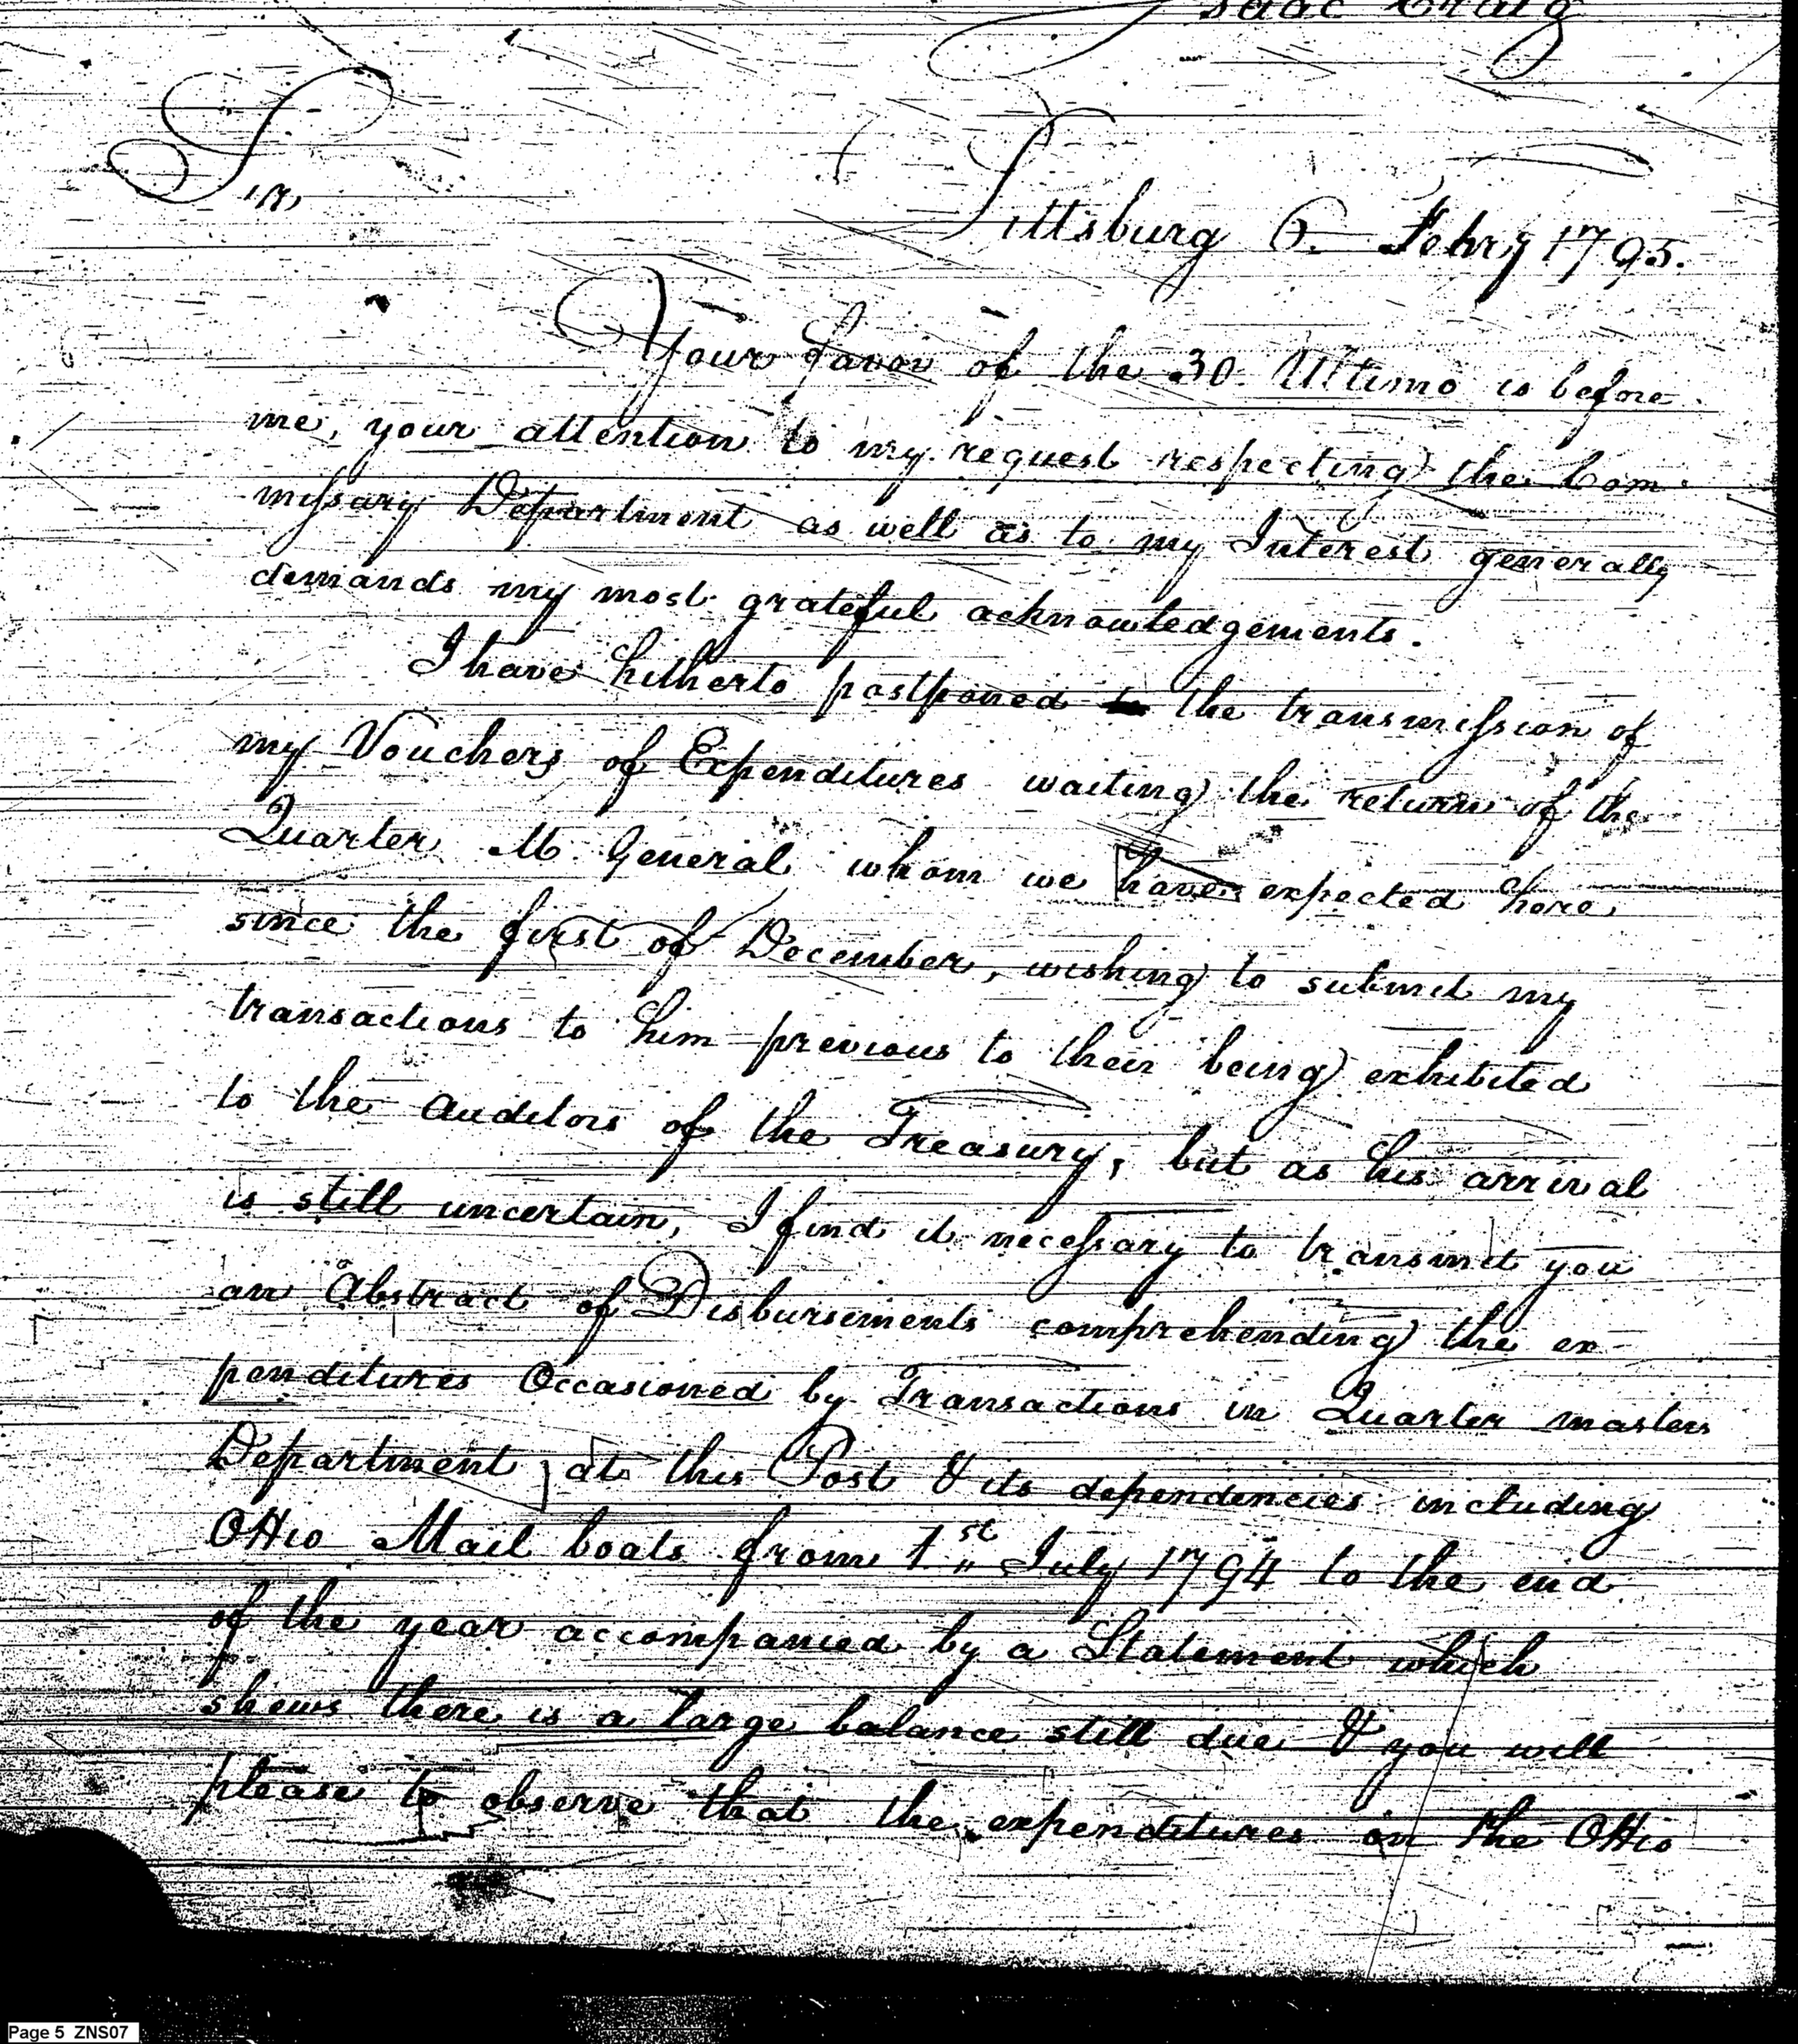 Isaac Craig
Sir,
Pittsburg 6. Febry 1795.
Your favor of the 30. Ultimo is before
me, your attention to my request respecting the Com
missary Department as well as to my Interest generally
demands my most grateful acknowledgements.
I have hitherto postponed to the transmission of
my Vouchers of Expenditures waiting the return of the
Quarter M. General whom we have expected here
since the first of December, wishing to submit my
transactions to him previous to their being exhibited
to the Auditors of the Treasury, but as his arrival
is still uncertain, I find it necessary to transmit you
an Abstract of Disbursements comprehending the ex-
penditures Occasioned by Transactions in Quarter masters
Department at this Post & its dependencies including
Ohio Mail boats from 1st July 1794 to the end
of the year accompanied by a Statement which
shews there is a large balance still due & you will
please to observe that the expenditures on the Ohio
Page 5 ZNS07